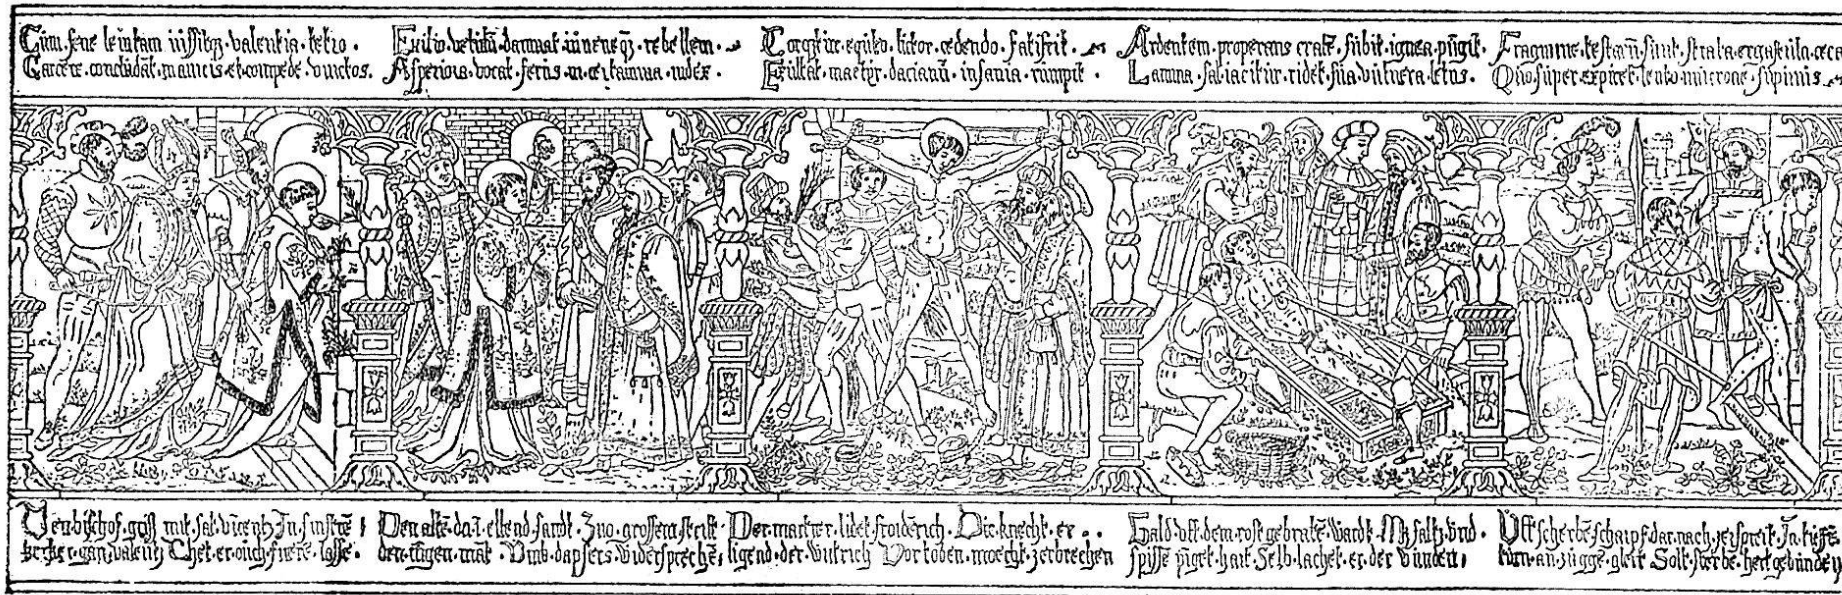 Cum.sene leuitam iussibq.valentia.tetro.
Carcere.concludat.manicis.et.compede.vinctos.
Exilio.vetulu.damnat.iuueneq.rebellem.
Asperiora.vocat.ferus.in.certamina.iudex.
Torquetur.equleo.lictor.cedendo.fatiscit.
Exultat.martyr.dacianu.insania.rumpit.
Ardentem.properans.crate.subit.ignea.pugit.
Lamina.sal.iacitur.ridet.sua.vulnera.letus.
Fragmine.testaru.sunt.strata.ergastula.ceca
Quo.super.expiret.lento.mucrone.supinus.
Den.bischof.mit.sat.vicentz.In.finstere
kerker.gan.valentz.Thet.er.ouch.fuere.lasse.
Den alte.da.i.ellend.sandt.Zuo.grossem.
den.iungen.mat.Umb.dapffers.widerspreche
Der.martrer.lidet.froiderich.Die.knecht.er.
ligend.der.wutrich.Vor toben.moecht.zerbrechen
Bald.uff.dem.rost gebrate.wardt.Mit saltz.und
spisse piget.hart.Selb.lachet.er.der wunden
Uff.scherbe.scharpf.dar.nach.zerspreit.In.tieffe
turn.an.zugge.gleit Solt.sterbe.hert gebunden